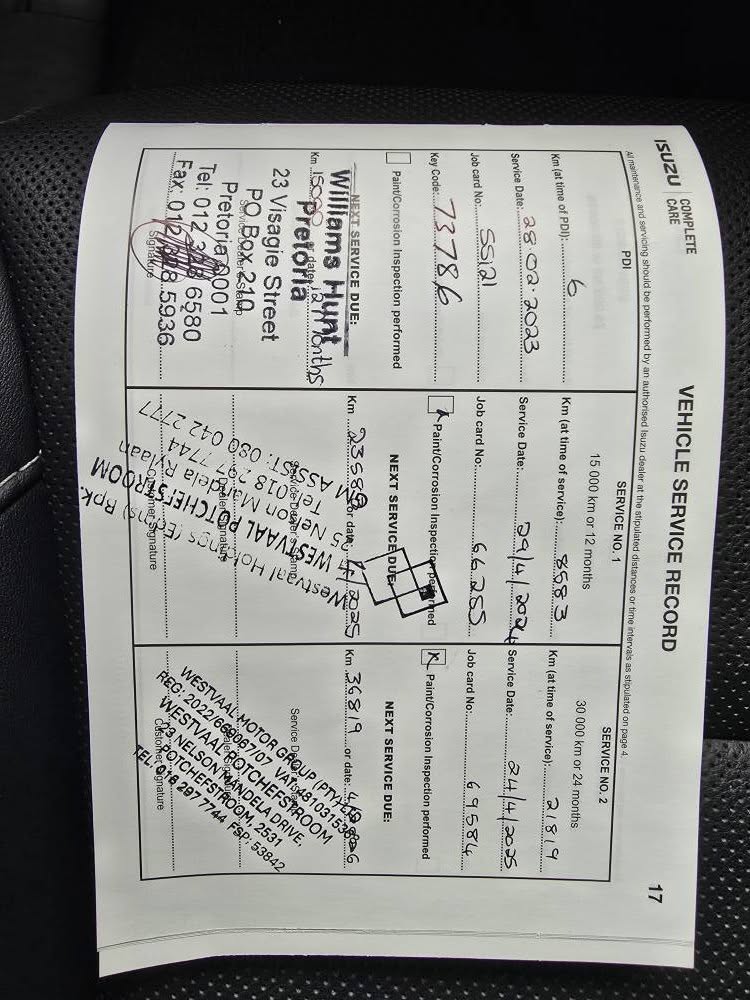 ISUZU | COMPLETE CARE
VEHICLE SERVICE RECORD
17
All maintenance and servicing should be performed by an authorised Isuzu dealer at the stipulated distances or time intervals as stipulated on page 4.
PDI
Km (at time of PDI): 6
Service Date: 28.02.2023
Job card No: 5512
Key Code: 73786
Paint/Corrosion Inspection performed
NEXT SERVICE DUE:
Km 15000 or date: 12 Months
Williams Hunt
Pretoria
23 Visagie Street
PO Box 210
Pretoria 0001
Tel: 012 6580
Fax: 012 5936
Signature
SERVICE NO. 1
15 000 km or 12 months
Km (at time of service): 8583
Service Date: 29/4/2024
Job card No: 66255
Paint/Corrosion Inspection performed
NEXT SERVICE DUE:
Km 23583 or date: 2025
Westvaal Holdings (Edms) Bpk.
WESTVAAL POTCHEFSTROOM
25 Nelson Mandela Rylaan
Tel: 018 297 7744
ASSIST: 080 042 2777
Signature
SERVICE NO. 2
30 000 km or 24 months
Km (at time of service): 21819
Service Date: 24/4/2025
Job card No: 69584
Paint/Corrosion Inspection performed
NEXT SERVICE DUE:
Km 36819 or date:
WESTVAAL MOTOR GROUP (PTY)
REG: 2022/669067/07 VAT:
WESTVAAL POTCHEFSTROOM
NELSON MANDELA DRIVE,
POTCHEFSTROOM, 2531
TEL: 018 297 7744 FSP: 53842
Customer Signature